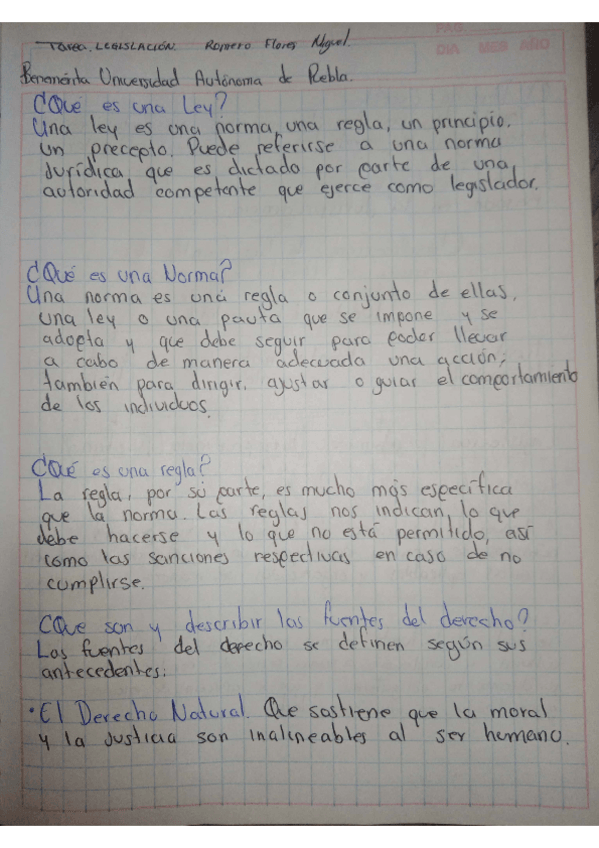 Tarea. LEGISLACIÓN. Romero Flores Miguel.
PAG.
DIA MES AÑO
Benemérita Universidad Autónoma de Puebla.
¿Qué es una Ley?
Una ley es una norma, una regla, un principio.
un precepto. Puede referirse a una norma
Jurídica que es dictado por parte de una
autoridad competente que ejerce como legislador.
¿Qué es una Norma?
Una norma es una regla o conjunto de ellas,
una ley o una pauta que se impone y se
adopta y que debe seguir para poder llevar
a cabo de manera adecuada una acción;
también para dirigir, ajustar o guiar el comportamiento
de los individuos.
¿Qué es una regla?
La regla, por su parte, es mucho más específica
que la norma. Las reglas nos indican, lo que
debe hacerse y lo que no está permitido, así
como las sanciones respectivas en caso de no
cumplirse.
¿Que son y describir las fuentes del derecho?
Las fuentes del derecho se definen según sus
antecedentes:
• El Derecho Natural. Que sostiene que la moral
y la Justicia son inalineables al ser humano.